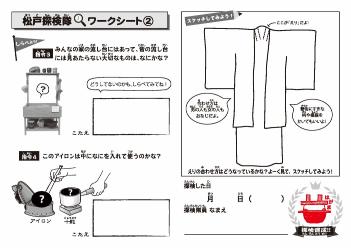 松戸探検隊 ワークシート②
しらべよう！
指令3 みんなの家の流し台にはあって、昔の流し台
には見あたらない大切なものは、なにかな？
どうしてないのかも、しらべてみてね！
こたえ
指令4 このアイロンは中になにを入れて使うのかな？
アイロン
こたえ
スケッチしてみよう！
ここが「えり」だよ！
えりの合わせ方はどうなっているかな？よーく見て、スケッチしてみよう！
探検した日
月 日（ ）
探検隊員 なまえ
探検隊認!!